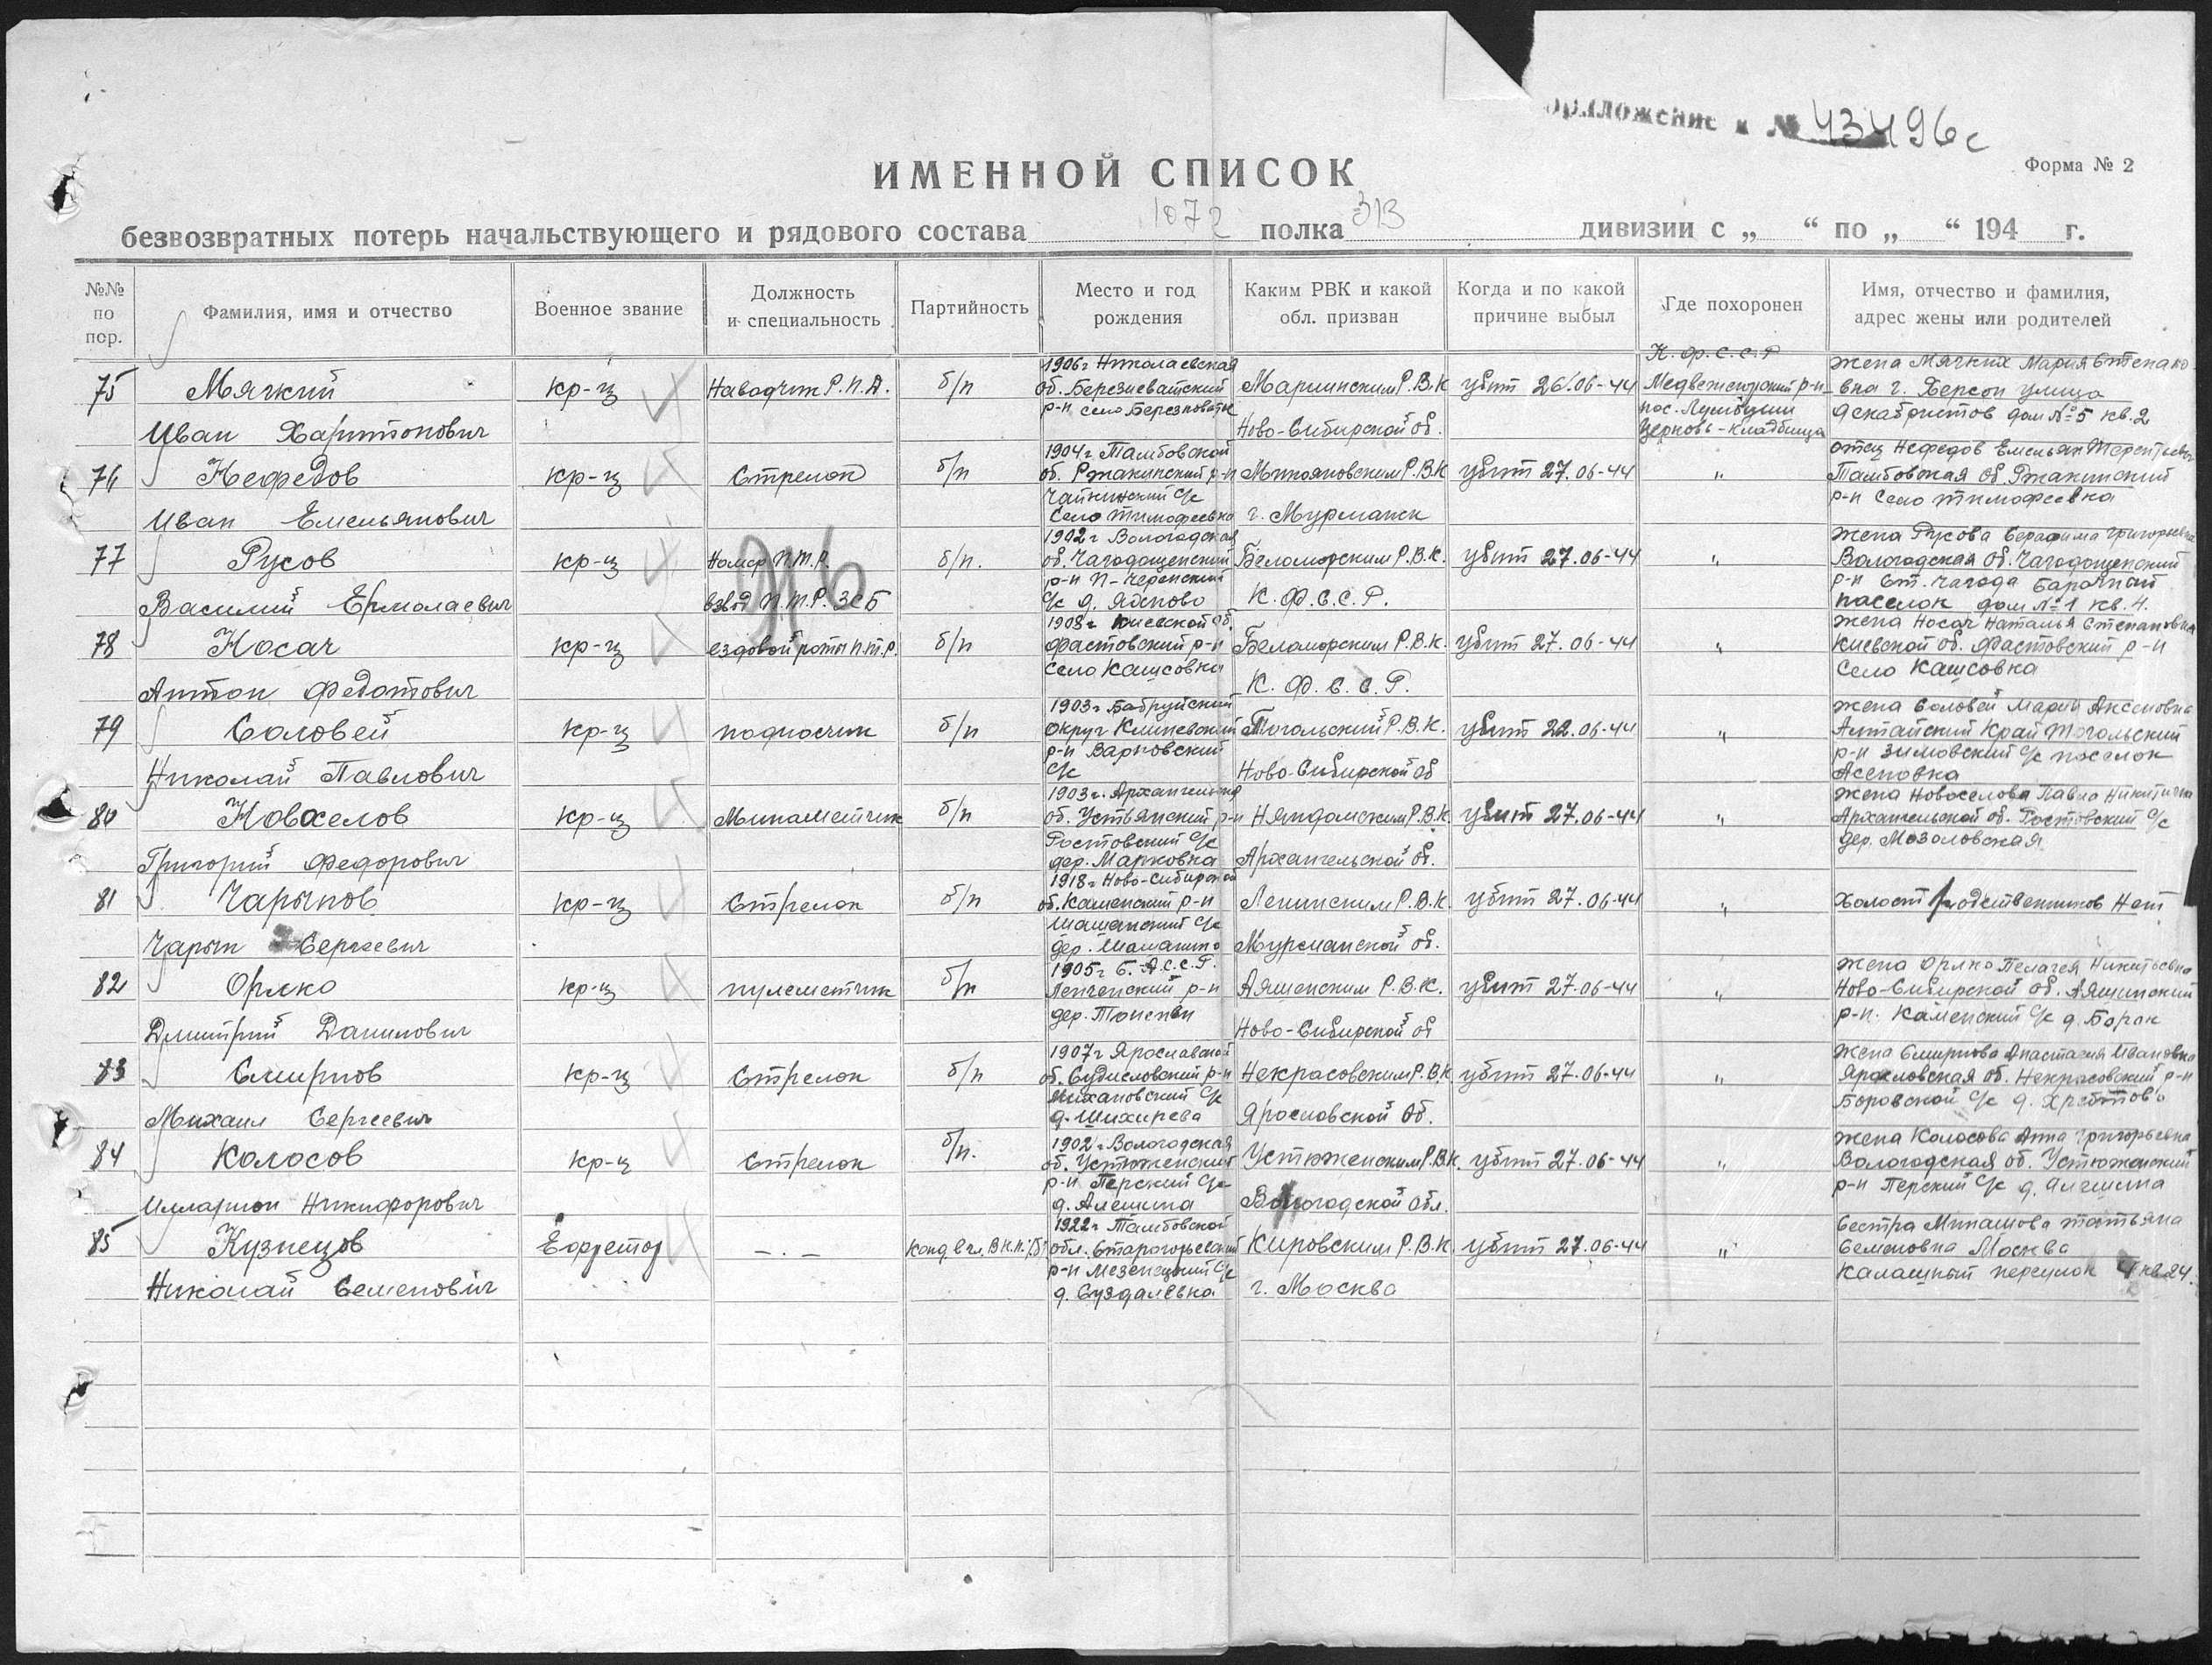 Приложение к № 43496с
ИМЕННОЙ СПИСОК
Форма № 2
безвозвратных потерь начальствующего и рядового состава 1072 полка 313 дивизии с „ “ по „ “ 194 г.
№№ по пор.
Фамилия, имя и отчество
Военное звание
Должность и специальность
Партийность
Место и год рождения
Каким РВК и какой обл. призван
Когда и по какой причине выбыл
Где похоронен
Имя, отчество и фамилия, адрес жены или родителей
916
75
Мягкий
Иван Харитонович
кр-ц
Наводчик Р.П.Д.
б/п
1906г Николаевская
об. Березневатский
р-н село Березноватое
Мариинским Р.В.К
Ново-Сибирской об.
убит 26.06-44
К.Ф.С.С.Р
Медвежегорский р-н
пос. Лумбуши
Церковь-кладбища
жена Мягких Мария Степано
вна г. Херсон улица
декабристов дом №5 кв.2
76
Нефедов
Иван Емельянович
кр-ц
Стрелок
б/п
1904г. Тамбовской
об. Ржакинский р-н
Чайкинский с/с
Село Тимофеевка
Микояновским Р.В.К
г. Мурманск
убит 27.06-44
"
отец Нефедов Емельян Терентьевич
Тамбовская об. Ржакинский
р-н Село Тимофеевка
77
Русов
Василий Ермолаевич
кр-ц
Номер П.Т.Р.
взвод П.Т.Р. 3СБ
б/п.
1902г Вологодская
об. Чагодощенский
р-н
с/с д.
Беломорским Р.В.К.
К.Ф.С.С.Р.
убит 27.06-44
"
жена Русова Серафима Григорьевна
Вологодская об. Чагодощенский
р-н ст. Чагода Барачный
поселок дом №1 кв. 4.
78
Носач
Антон Федотович
кр-ц
ездовой роты п.т.р.
б/п
1908г Киевской об.
Фастовский р-н
Село Кашсовка
Беломорским Р.В.К.
К.Ф.С.С.Р.
убит 27.06-44
"
жена Носач Наталья Степановна
Киевской об. Фастовский р-н
Село Кашсовка
79
Соловей
Николай Павлович
кр-ц
подносчик
б/п
1903г Бабруйский
округ Кличевский
р-н Варновский
с/с
Тогольский Р.В.К.
Ново-Сибирской об
убит 22.06-44
"
жена Соловей Мария Аксеновна
Алтайский Край Тогольский
р-н Зимовский с/с поселок
Асеновка
80
Новоселов
Григорий Федорович
кр-ц
Минометчик
б/п
1903г. Архангельская
об. Устьянский р-н
Ростовский с/с
дер. Марковка
Няндомским Р.В.К
Архангельской об.
убит 27.06-44
"
жена Новоселова Павла Никитична
Архангельской об. Ростовский с/с
дер. Мозоловская
81
Чарыков
Чарык Сергеевич
кр-ц
Стрелок
б/п
1918г Ново-Сибирской
об. Каменский р-н
с/с
дер.
Ленинским Р.В.К
Мурманской об.
убит 27.06-44
"
Холост родственников Нет
82
Орлко
Дмитрий Данилович
кр-ц
пулеметчик
б/п
1905г Б.А.С.С.Р.
р-н
дер.
Аяшенским Р.В.К.
Ново-Сибирской об
убит 27.06-44
"
жена Орлко Пелагея Никитьевна
Ново-Сибирской об. Аяшинский
р-н. Каменский с/с д. Барак
83
Смирнов
Михаил Сергеевич
кр-ц
Стрелок
б/п
1907г Ярославской
об. Судисловский р-н
Михановский с/с
д. Шихирева
Некрасовским Р.В.К
Ярославской об.
убит 27.06-44
"
жена Смирнова Анастасия Ивановна
Ярославская об. Некрасовский р-н
Боровской с/с д.
84
Колосов
Илларион Никифорович
кр-ц
Стрелок
б/п.
1902г Вологодская
об. Устюженский
р-н Перский с/с
д. Алешина
Устюженским Р.В.К.
Вологодской обл.
убит 27.06-44
"
жена Колосова Анна Григорьевна
Вологодская об. Устюженский
р-н Перский с/с д.
85
Кузнецов
Николай Семенович
Ефрейтор
— . —
канд. в чл. ВКП/б/
1922г Тамбовской
обл. Староюрьевский
р-н Мезенецкий с/с
д. Суздалевка
Кировским Р.В.К.
г. Москва
убит 27.06-44
"
Сестра Минашова Татьяна
Семеновна Москва
Калашный переулок 4 кв 24.